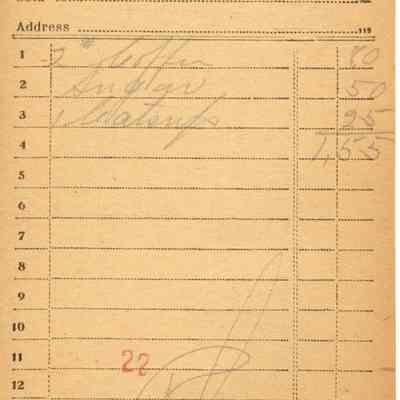 Address
1 2# Coffee 80
2 Sugar 50
3 1 Catsup 25
4 1,55
5
6
7
8
9
10
11 22
12